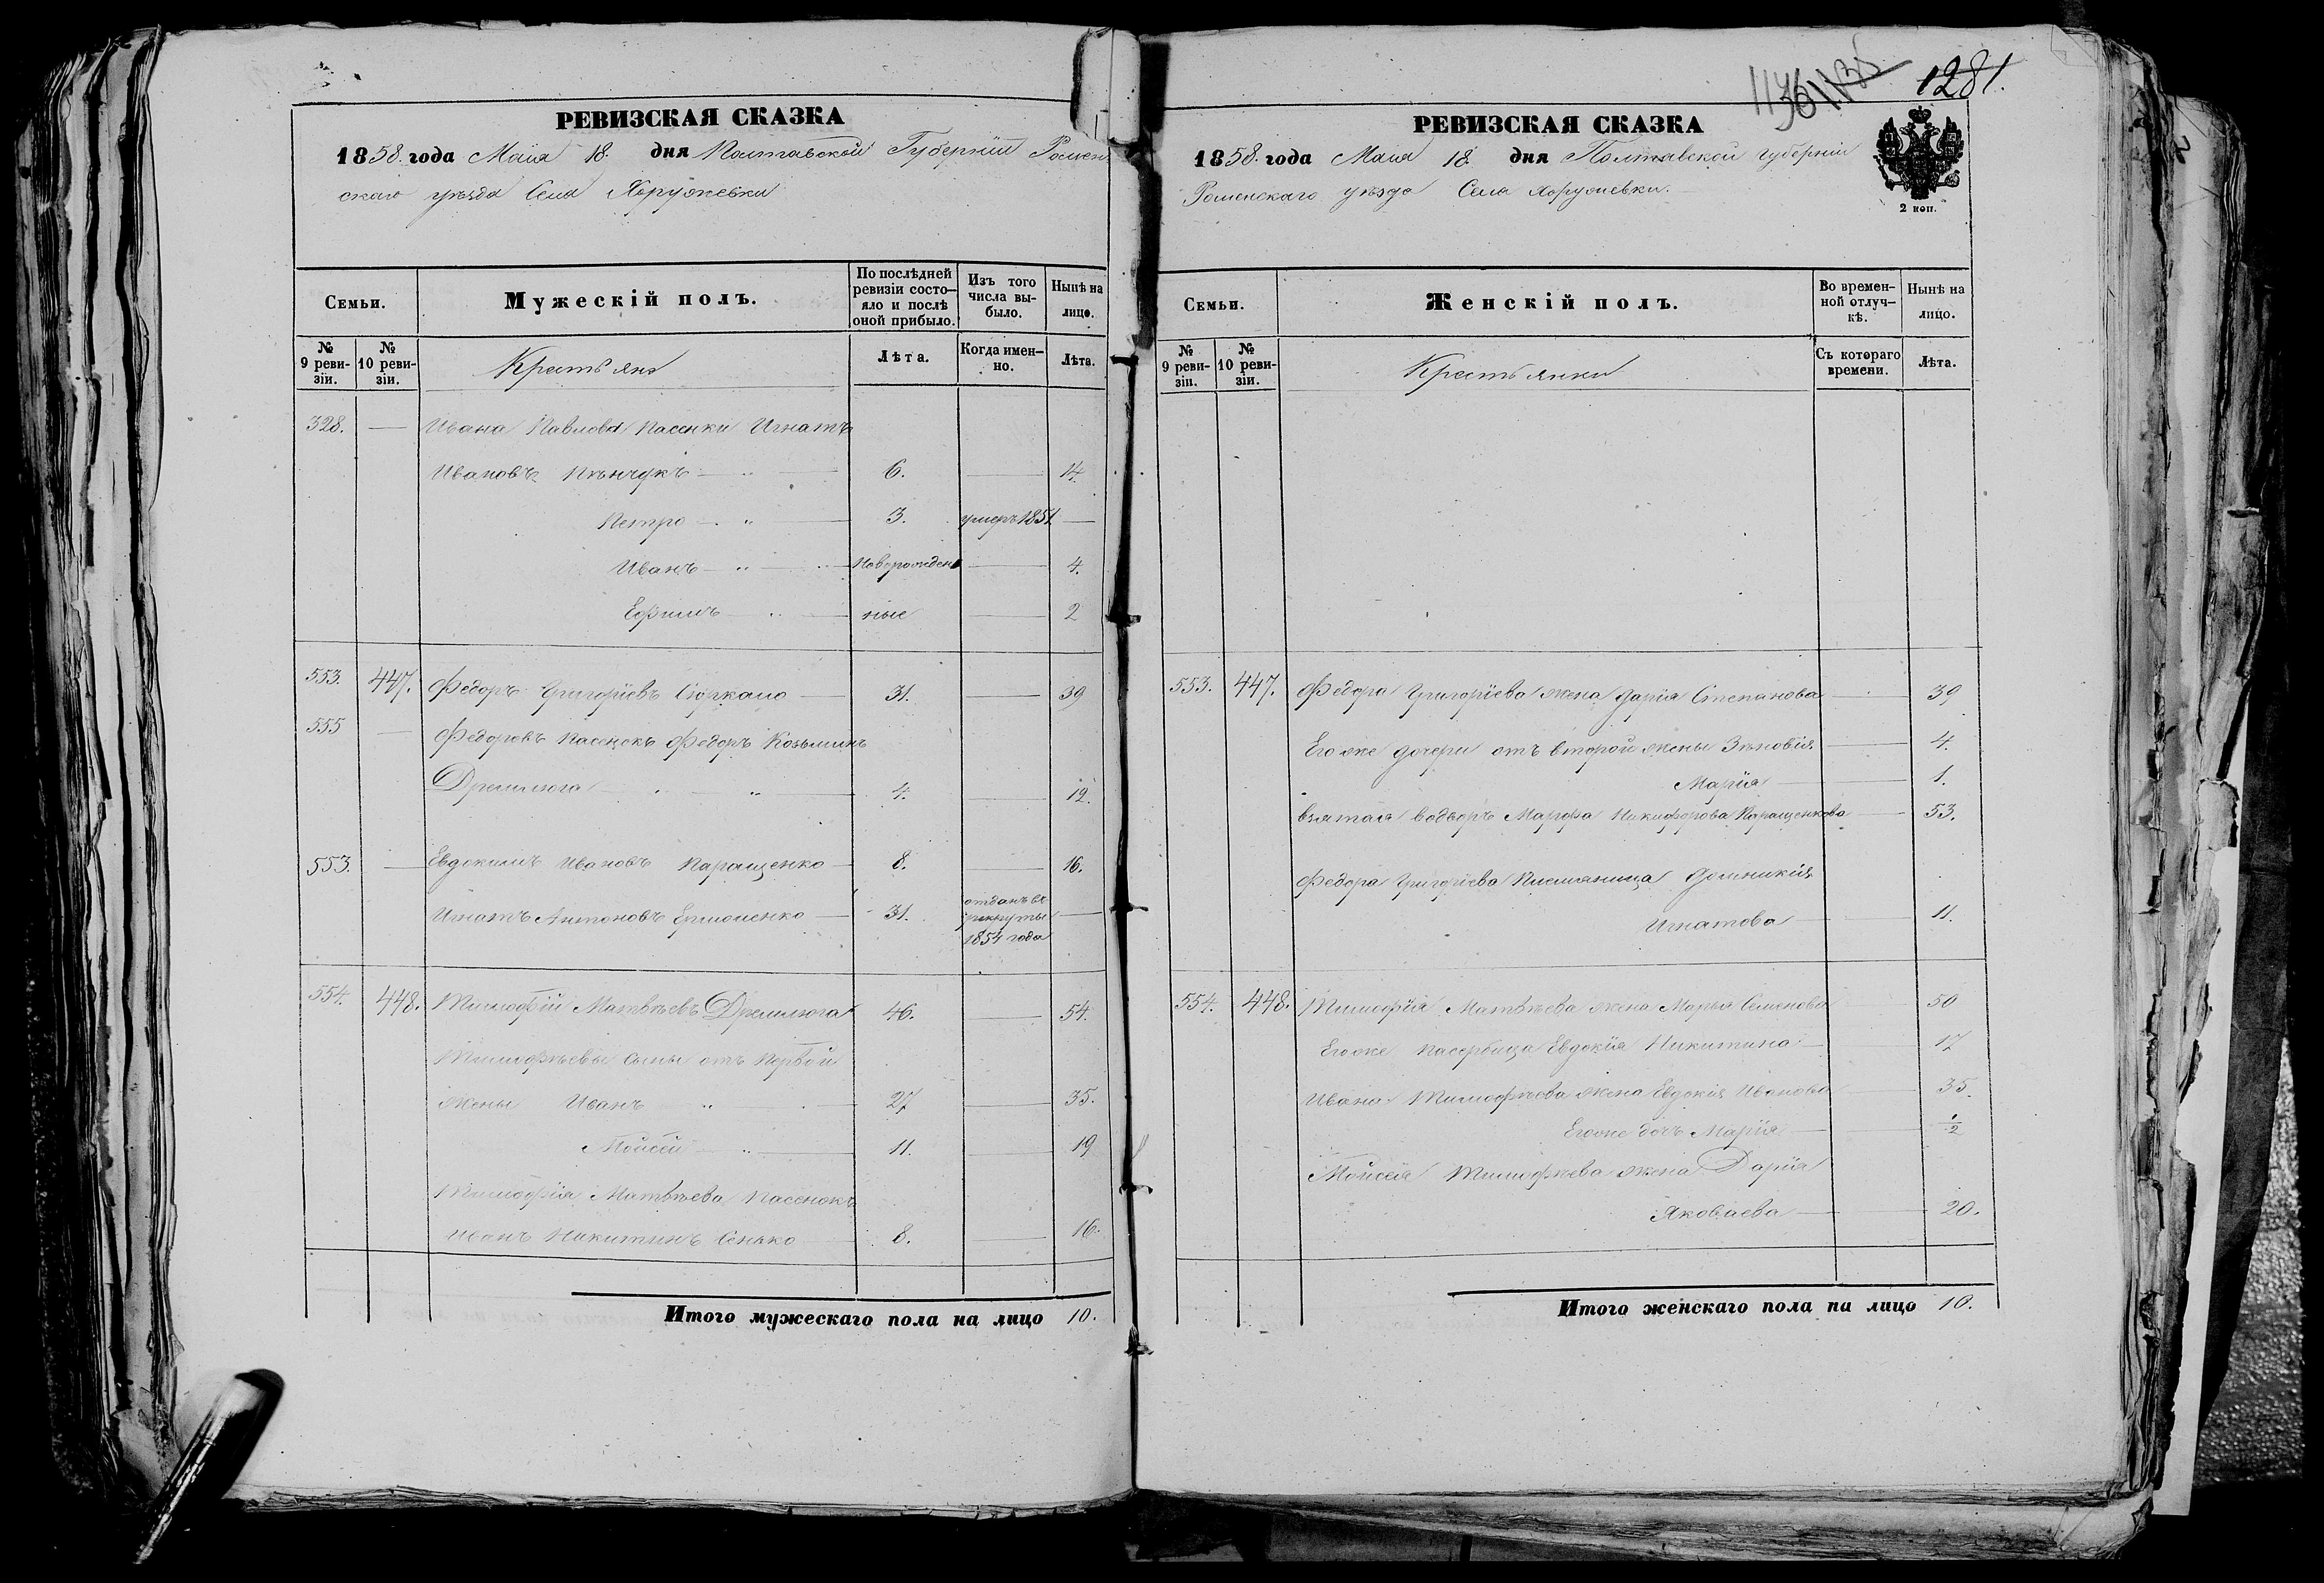 РЕВИЗСКАЯ СКАЗКА
1858. года Мая 18. дня Полтавской Губерніи Ромен
скаго уѣзда Села Хоружевки
Семьи.
Мужескій полъ.
По послѣдней ревизіи состо-яло и послѣ оной прибыло.
Изъ того числа вы-было.
Нынѣ на лицо.
№ 9 реви-зіи.
№ 10 реви-зіи.
Крестьянѣ
Лѣта.
Когда имен-но.
Лѣта.
328. — Ивана Павлова пасенки Игнатъ
Ивановъ — " — 6. — 14.
Петро — " — 3. умеръ 1851 —
Иванъ — " — Новорожден — 4.
Ефимъ — " — ные — 2
553. 447. Федоръ Григоріевъ — 31. — 39
555 — Федоровъ пасенокъ Федоръ Козьминъ
Дремлюга — " — 4. — 12.
553. — Евдокимъ Ивановъ Паращенко — 8. — 16.
Игнатъ Антоновъ Ермоленко — 31. отданъ въ
рекруты —
1854 года
554. 448. Тимофій Матвѣевъ Дремлюга 46. — 54.
Тимофѣевы сыны отъ первой
жены Иванъ " — 27 — 35.
Мойсей — " — 11. — 19
Тимофія Матвѣева пасенокъ
Иванъ Никитинъ Сенько — 8. — 16.
Итого мужескаго пола на лицо 10.
1281.
РЕВИЗСКАЯ СКАЗКА
1858. года Мая 18. дня Полтавской губерніи
Роменскаго уѣзда Села Хоружевки.
2 коп.
Семьи.
Женскій полъ.
Во времен-ной отлуч-кѣ.
Нынѣ на лицо.
№ 9 реви-зіи.
№ 10 реви-зіи.
Крестьянки
Съ котораго времени.
Лѣта.
553. 447. Федора Григоріева жена Дарія Степанова — 39
Его же дочери отъ второй жены Зѣновія — 4.
Марія — 1.
взятая водворъ Марфа Никифорова Паращенкова — 53.
Федора Григоріева Домникія
Игнатова — 11.
554. 448. Тимофія Матвѣева жена Марья Семенова 50
Его же пасербица Евдокія Никитина — 17
Ивана Тимофѣева жена Евдокія Иванова — 35.
Его же дочь Марія — 1/2
Мойсея Тимофѣева жена Дарія
Яковлева — 20.
Итого женскаго пола на лицо 10.